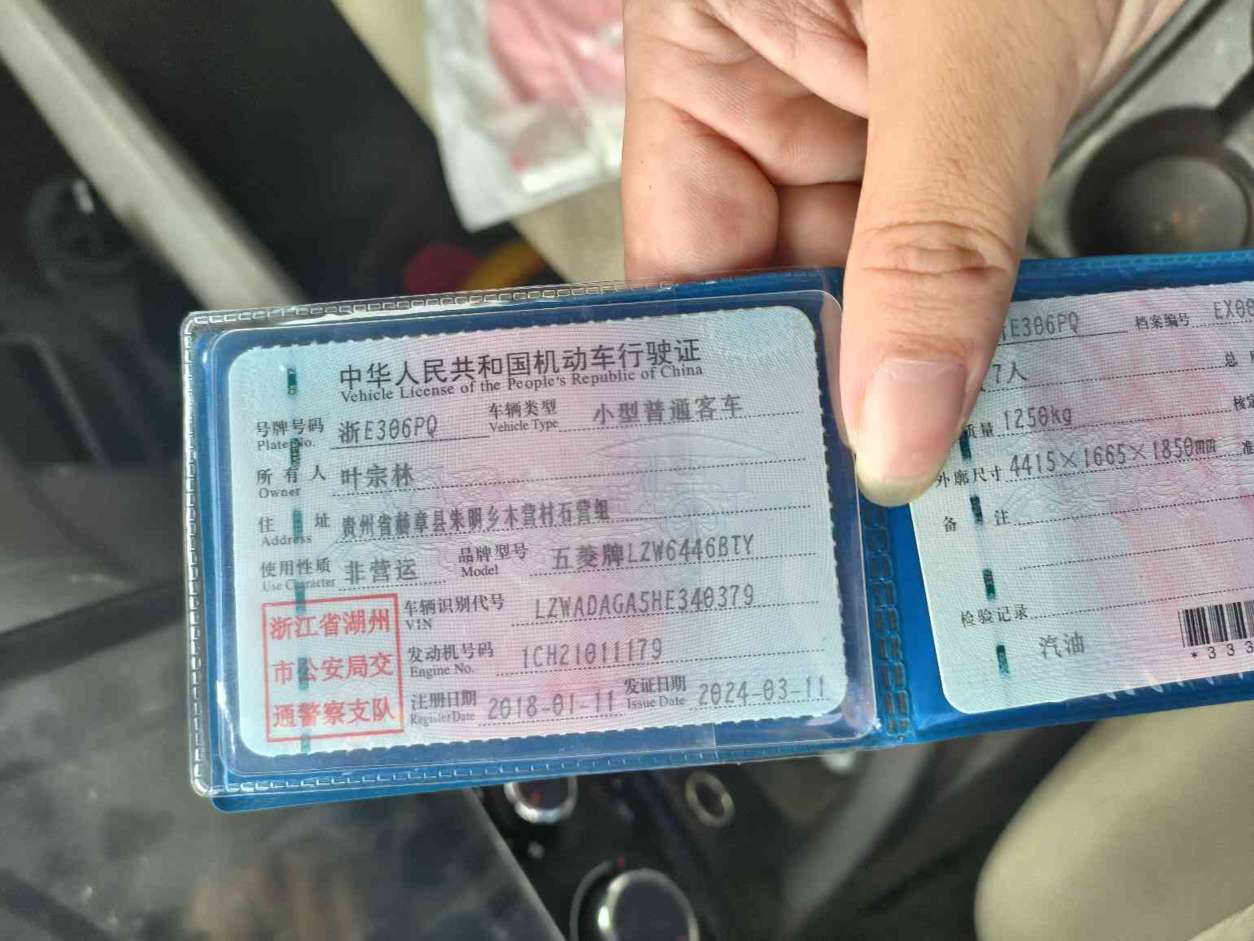 中华人民共和国机动车行驶证
Vehicle License of the People's Republic of China
号牌号码 浙E306PQ 车辆类型 小型普通客车
Plate No. Vehicle Type
所有人 叶宗林
Owner
住址 贵州省赫章县朱明乡木营村石营组
Address
使用性质 非营运 品牌型号 五菱牌LZW6446BTY
Use Character Model
浙江省湖州
市公安局交
通警察支队
车辆识别代号 LZWADAGA5HE340379
VIN
发动机号码 1CH21011179
Engine No.
注册日期 2018-01-11 发证日期 2024-03-11
Register Date Issue Date
E306PQ 档案编号
7人 总
质量 1250kg 核定
外廓尺寸 4415×1665×1850mm 准
备注
检验记录
汽油
*333